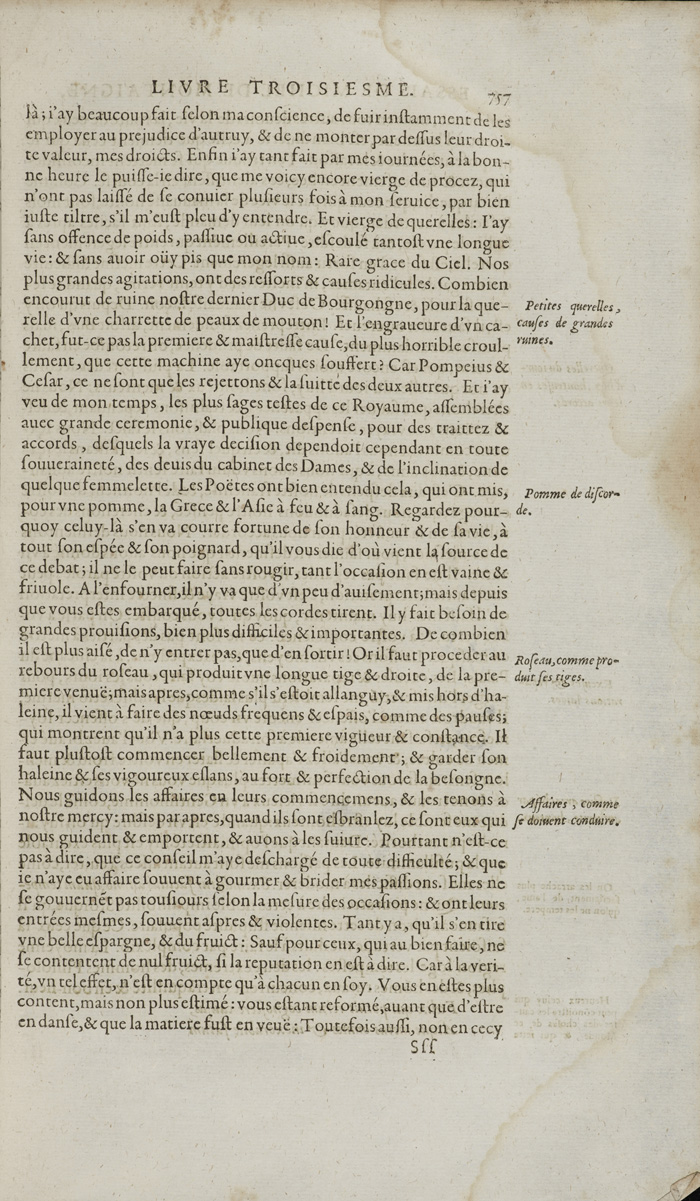 LIVRE TROISIESME. 757
là; i'ay beaucoup fait ſelon ma conſcience, de fuir inſtamment de les
employer au prejudice d'autruy, & de ne monter par deſſus leur droi-
te valeur, mes droicts. Enfin i'ay tant fait par mes iournées, à la bon-
ne heure le puiſſe-ie dire, que me voicy encore vierge de procez, qui
n'ont pas laiſſé de ſe conuier pluſieurs fois à mon ſeruice, par bien
iuſte tiltre, s'il m'euſt pleu d'y entendre. Et vierge de querelles: I'ay
ſans offence de poids, paſſiue ou actiue, eſcoulé tantoſt vne longue
vie: & ſans auoir oüy pis que mon nom: Rare grace du Ciel. Nos
plus grandes agitations, ont des reſſorts & cauſes ridicules. Combien
encourut de ruine noſtre dernier Duc de Bourgongne, pour la que-
relle d'vne charrette de peaux de mouton! Et l'engraueure d'vn ca-
chet, fut-ce pas la premiere & maiſtreſſe cauſe, du plus horrible croul-
lement, que cette machine aye oncques ſouffert? Car Pompeius &
Ceſar, ce ne ſont que les rejettons & la ſuitte des deux autres. Et i'ay
veu de mon temps, les plus ſages teſtes de ce Royaume, aſſemblées
auec grande ceremonie, & publique deſpenſe, pour des traittez &
accords, deſquels la vraye deciſion dependoit cependant en toute
ſouueraineté, des deuis du cabinet des Dames, & de l'inclination de
quelque femmelette. Les Poëtes ont bien entendu cela, qui ont mis,
pour vne pomme, la Grece & l'Aſie à feu & à ſang. Regardez pour-
quoy celuy-là s'en va courre fortune de ſon honneur & de ſa vie, à
tout ſon eſpée & ſon poignard, qu'il vous die d'où vient la ſource de
ce debat; il ne le peut faire ſans rougir, tant l'occaſion en eſt vaine &
friuole. A l'enfourner, il n'y va que d'vn peu d'auiſement; mais depuis
que vous eſtes embarqué, toutes les cordes tirent. Il y fait beſoin de
grandes prouiſions, bien plus difficiles & importantes. De combien
il eſt plus aiſé, de n'y entrer pas, que d'en ſortir! Or il faut proceder au
rebours du roſeau, qui produit vne longue tige & droite, de la pre-
miere venuë; mais apres, comme s'il s'eſtoit allanguy, & mis hors d'ha-
leine, il vient à faire des nœuds frequens & eſpais, comme des pauſes;
qui montrent qu'il n'a plus cette premiere vigueur & conſtance. Il
faut pluſtoſt commencer bellement & froidement; & garder ſon
haleine & ſes vigoureux eſlans, au fort & perfection de la beſongne.
Nous guidons les affaires en leurs commencemens, & les tenons à
noſtre mercy: mais par apres, quand ils ſont eſbranlez, ce ſont eux qui
nous guident & emportent, & auons à les ſuiure. Pourtant n'eſt-ce
pas à dire, que ce conſeil m'aye deſchargé de toute difficulté; & que
ie n'aye eu affaire ſouuent à gourmer & brider mes paſſions. Elles ne
ſe gouuernẽt pas touſiours ſelon la meſure des occaſions: & ont leurs
entrées meſmes, ſouuent aſpres & violentes. Tant y a, qu'il s'en tire
vne belle eſpargne, & du fruict: Sauf pour ceux, qui au bien faire, ne
ſe contentent de nul fruict, ſi la reputation en eſt à dire. Car à la veri-
té, vn tel effet, n'eſt en compte qu'à chacun en ſoy. Vous en eſtes plus
content, mais non plus eſtimé: vous eſtant reformé, auant que d'eſtre
en danſe, & que la matiere fuſt en veuë: Toutefois auſſi, non en cecy
Sſſ
Petites querelles,
cauſes de grandes
ruines.
Pomme de diſcor-
de.
Roſeau, comme pro-
duit ſes tiges.
Affaires, comme
ſe doiuent conduire.